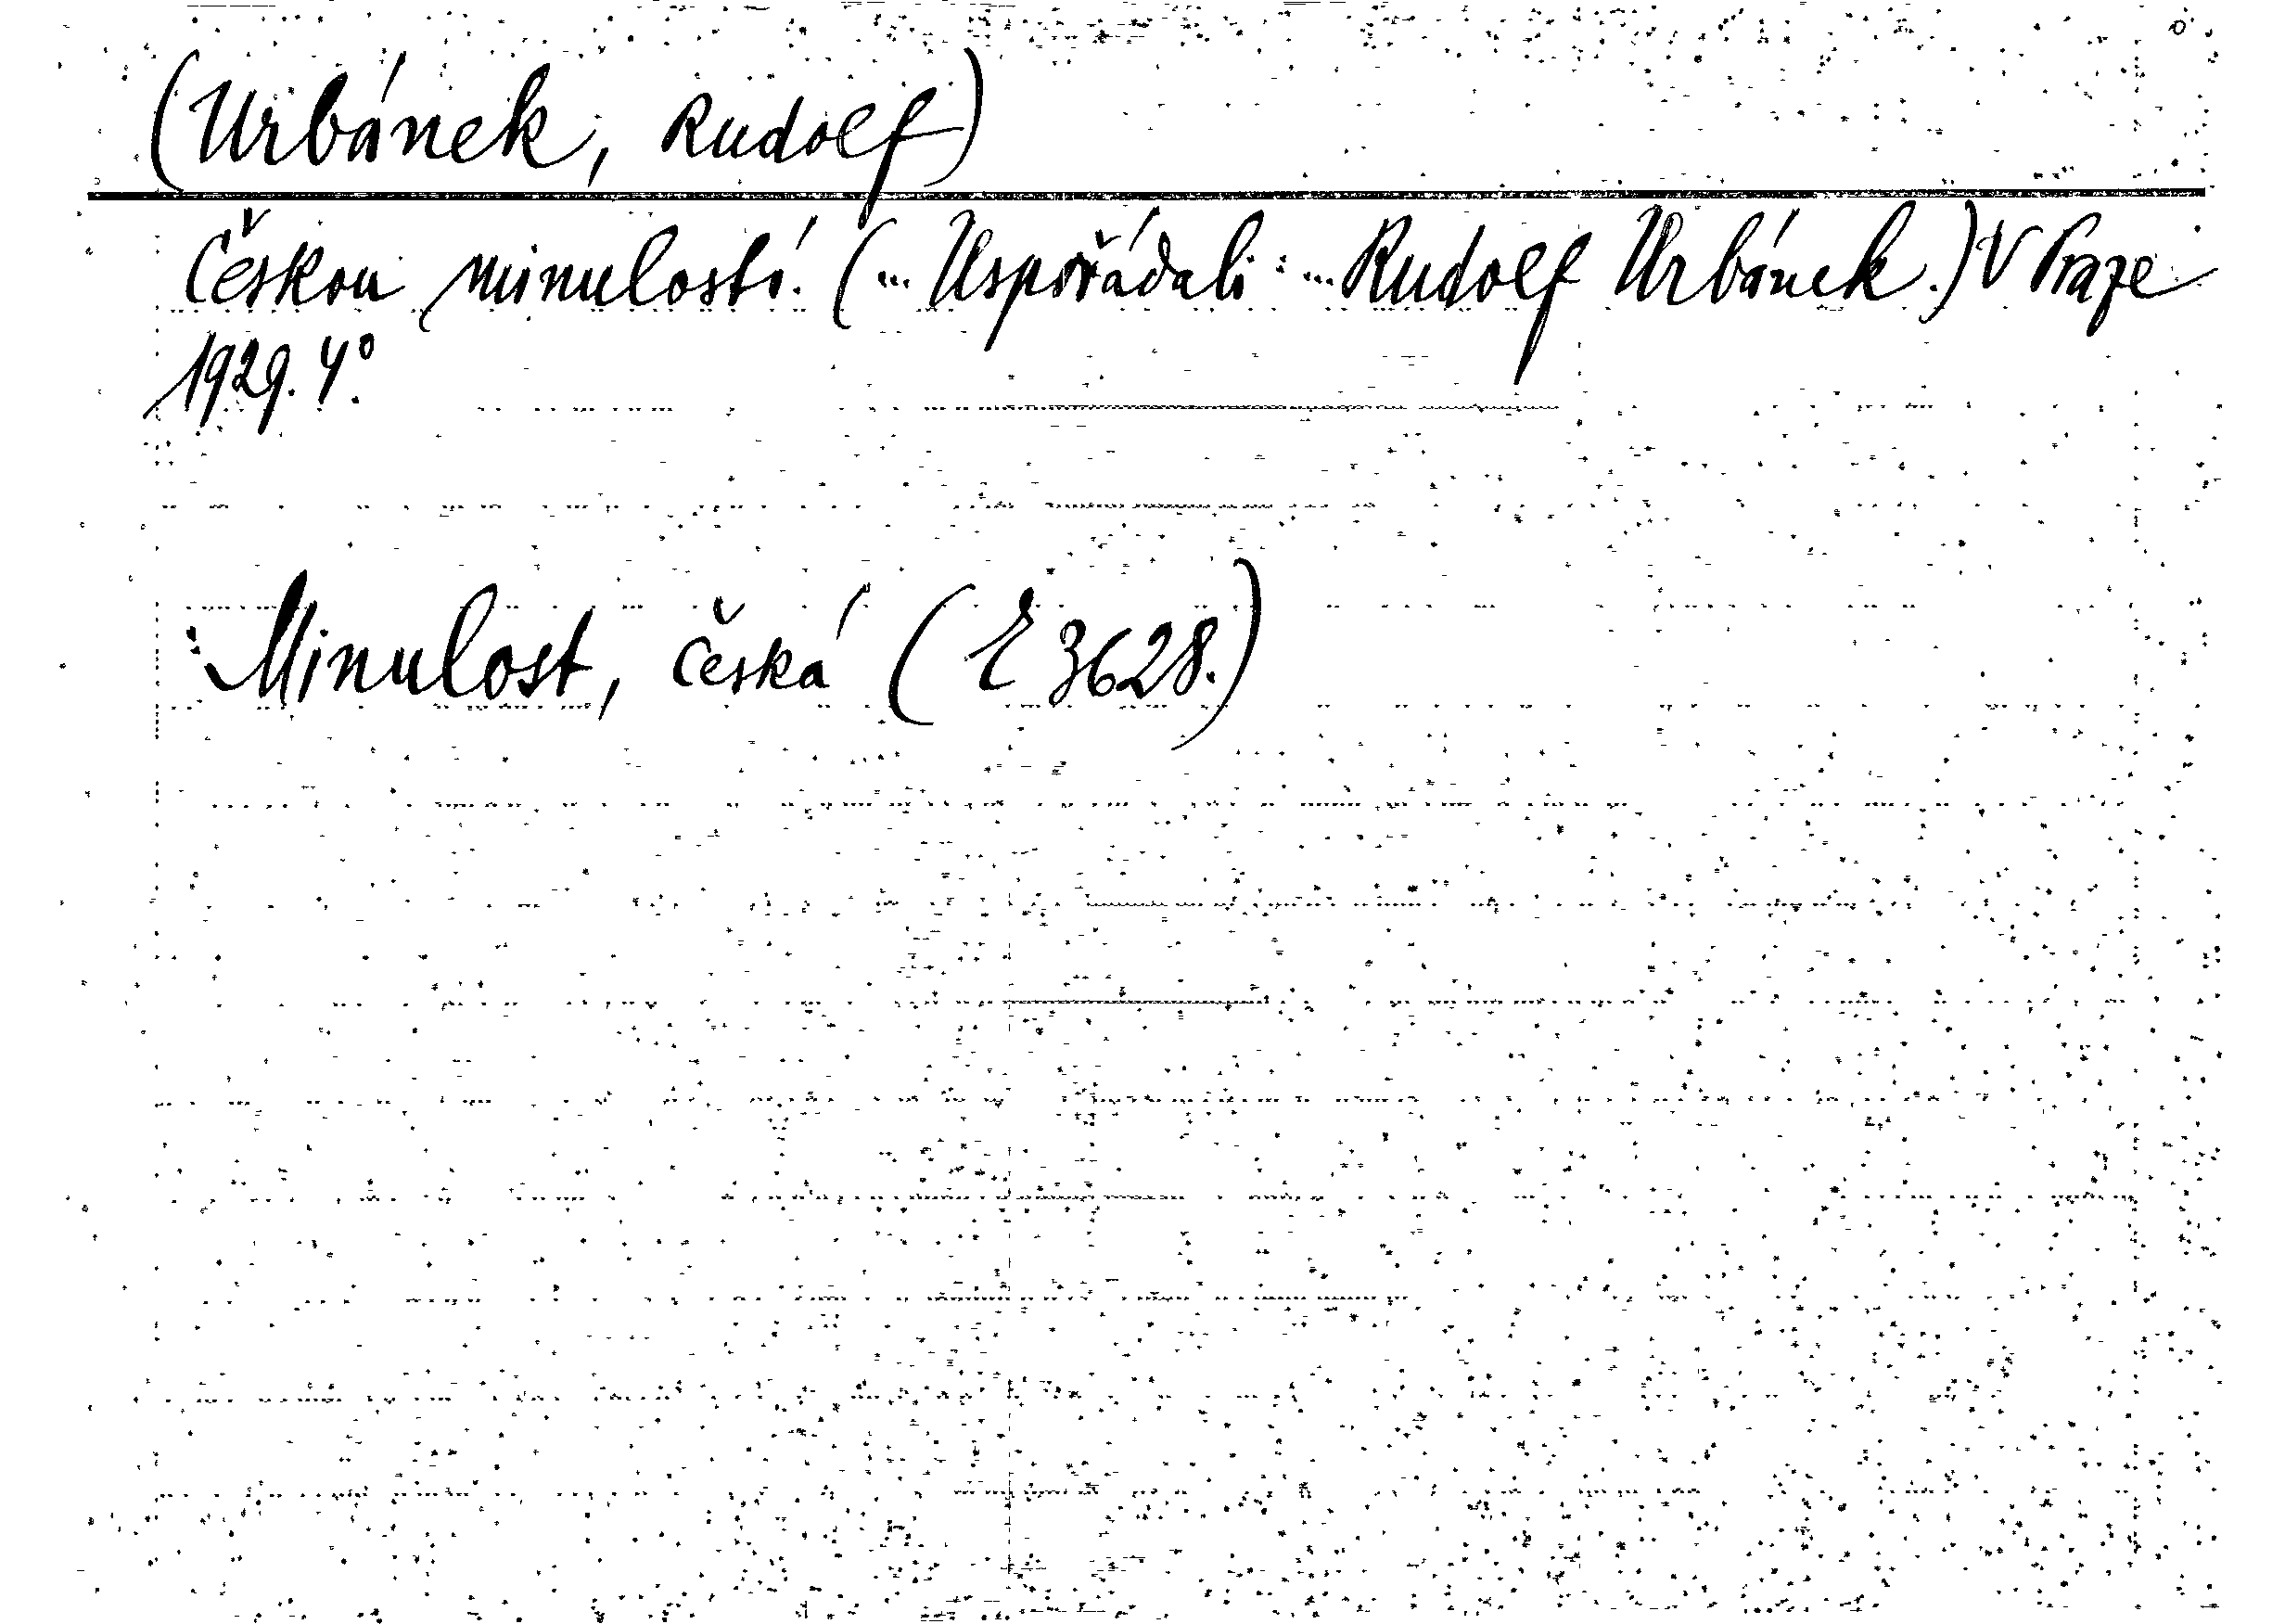 (Urbánek, Rudolf)
Českou minulostí. (... Uspořádali: ... Rudolf Urbánek.) V Praze
1929. 4°.
Minulost, česká (E 3628.)